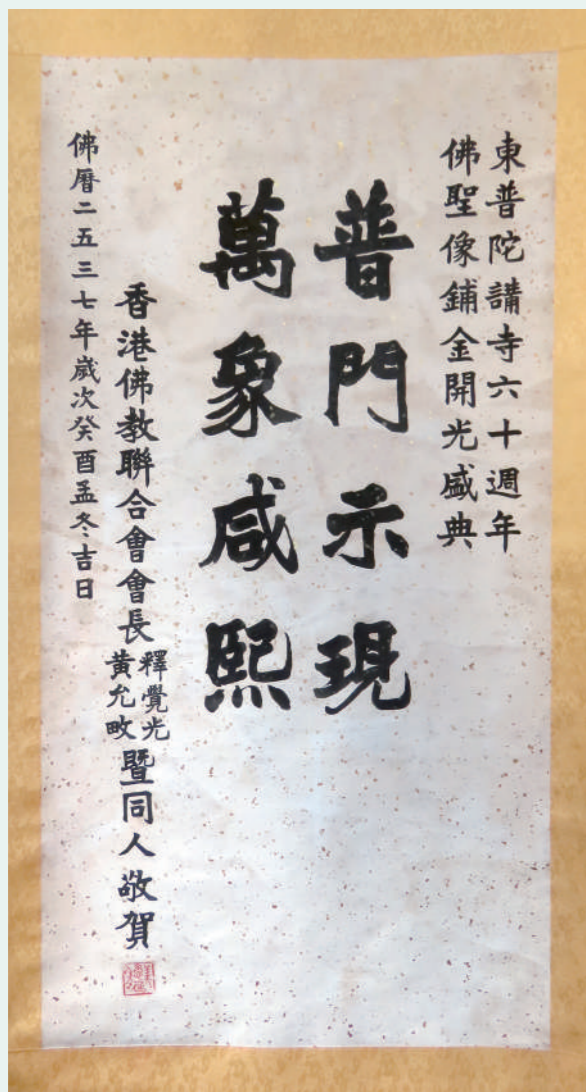 東普陀講寺六十週年
佛聖像鋪金開光盛典
普門示現
萬象咸熙
香港佛教聯合會會長釋覺光黃允畋暨同人敬賀
佛曆二五三七年歲次癸酉孟冬吉日